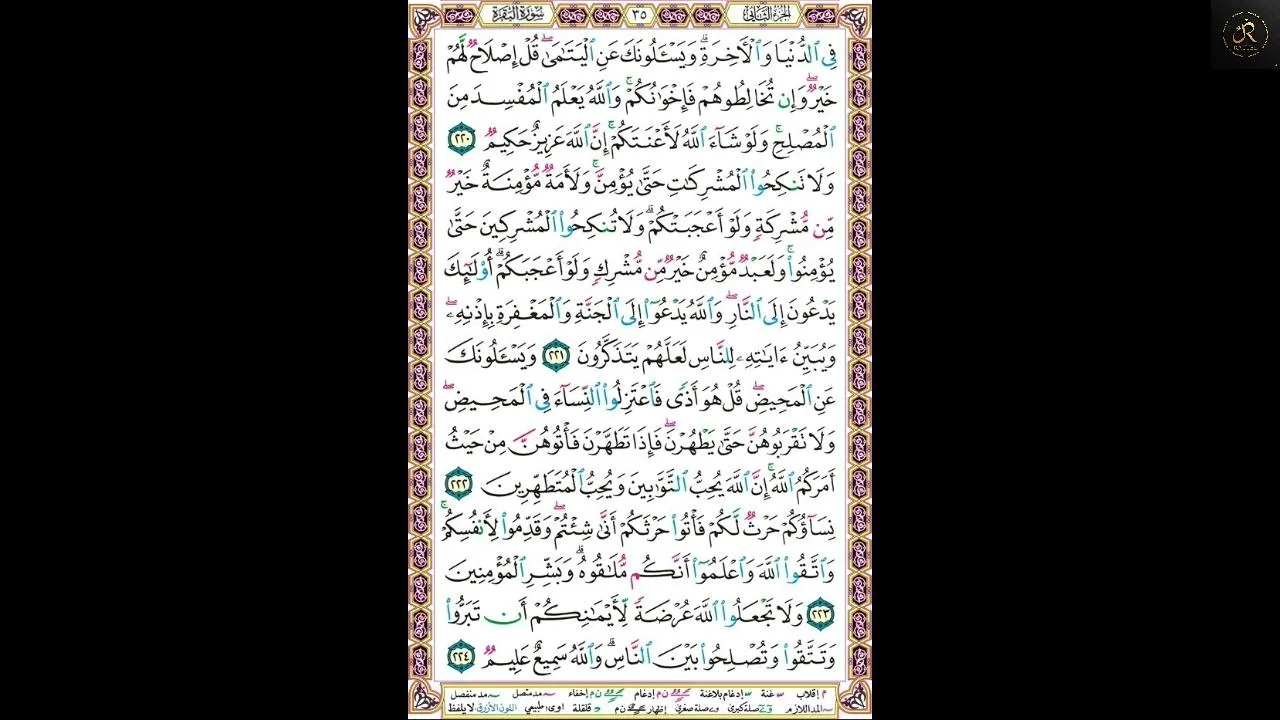 الجزء الثاني ٣٥ سورة البقرة
فِى ٱلدُّنْيَا وَٱلْأَخِرَةِ ۗ وَيَسْـَٔلُونَكَ عَنِ ٱلْيَتَٰمَىٰ ۖ قُلْ إِصْلَاحٌ لَّهُمْ
خَيْرٌ ۖ وَإِن تُخَالِطُوهُمْ فَإِخْوَٰنُكُمْ ۚ وَٱللَّهُ يَعْلَمُ ٱلْمُفْسِدَ مِنَ
ٱلْمُصْلِحِ ۚ وَلَوْ شَآءَ ٱللَّهُ لَأَعْنَتَكُمْ ۚ إِنَّ ٱللَّهَ عَزِيزٌ حَكِيمٌ ٢٢٠
وَلَا تَنكِحُوا۟ ٱلْمُشْرِكَٰتِ حَتَّىٰ يُؤْمِنَّ ۚ وَلَأَمَةٌ مُّؤْمِنَةٌ خَيْرٌ
مِّن مُّشْرِكَةٍ وَلَوْ أَعْجَبَتْكُمْ ۗ وَلَا تُنكِحُوا۟ ٱلْمُشْرِكِينَ حَتَّىٰ
يُؤْمِنُوا۟ ۚ وَلَعَبْدٌ مُّؤْمِنٌ خَيْرٌ مِّن مُّشْرِكٍ وَلَوْ أَعْجَبَكُمْ ۗ أُو۟لَٰٓئِكَ
يَدْعُونَ إِلَى ٱلنَّارِ ۖ وَٱللَّهُ يَدْعُوٓا۟ إِلَى ٱلْجَنَّةِ وَٱلْمَغْفِرَةِ بِإِذْنِهِۦ ۖ
وَيُبَيِّنُ ءَايَٰتِهِۦ لِلنَّاسِ لَعَلَّهُمْ يَتَذَكَّرُونَ ٢٢١ وَيَسْـَٔلُونَكَ
عَنِ ٱلْمَحِيضِ ۖ قُلْ هُوَ أَذًى فَٱعْتَزِلُوا۟ ٱلنِّسَآءَ فِى ٱلْمَحِيضِ ۖ
وَلَا تَقْرَبُوهُنَّ حَتَّىٰ يَطْهُرْنَ ۖ فَإِذَا تَطَهَّرْنَ فَأْتُوهُنَّ مِنْ حَيْثُ
أَمَرَكُمُ ٱللَّهُ ۚ إِنَّ ٱللَّهَ يُحِبُّ ٱلتَّوَّٰبِينَ وَيُحِبُّ ٱلْمُتَطَهِّرِينَ ٢٢٢
نِسَآؤُكُمْ حَرْثٌ لَّكُمْ فَأْتُوا۟ حَرْثَكُمْ أَنَّىٰ شِئْتُمْ ۖ وَقَدِّمُوا۟ لِأَنفُسِكُمْ ۚ
وَٱتَّقُوا۟ ٱللَّهَ وَٱعْلَمُوٓا۟ أَنَّكُم مُّلَٰقُوهُ ۗ وَبَشِّرِ ٱلْمُؤْمِنِينَ
٢٢٣ وَلَا تَجْعَلُوا۟ ٱللَّهَ عُرْضَةً لِّأَيْمَٰنِكُمْ أَن تَبَرُّوا۟
وَتَتَّقُوا۟ وَتُصْلِحُوا۟ بَيْنَ ٱلنَّاسِ ۗ وَٱللَّهُ سَمِيعٌ عَلِيمٌ ٢٢٤
م إقلاب غنة إدغام بلاغنة ن م إدغام ن م إخفاء مد متصل مد منفصل
المد اللازم صلة كبرى صلة صغرى إظهار ن م قلقلة اوى: طبيعي اللون الأزرق لا يلفظ
R